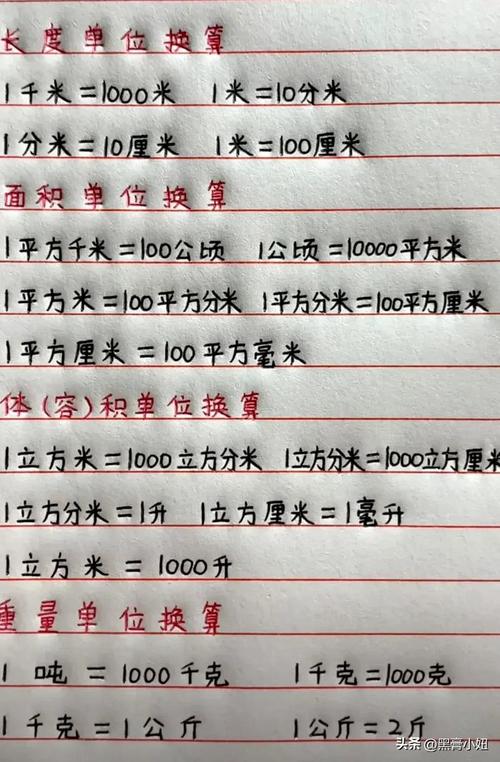 长度单位换算
1千米=1000米 1米=10分米
1分米=10厘米 1米=100厘米
面积单位换算
1平方千米=100公顷 1公顷=10000平方米
1平方米=100平方分米 1平方分米=100平方厘米
1平方厘米=100平方毫米
体(容)积单位换算
1立方米=1000立方分米 1立方分米=1000立方厘米
1立方分米=1升 1立方厘米=1毫升
1立方米=1000升
重量单位换算
1吨=1000千克 1千克=1000克
1千克=1公斤 1公斤=2斤
头条@黑膏小妞